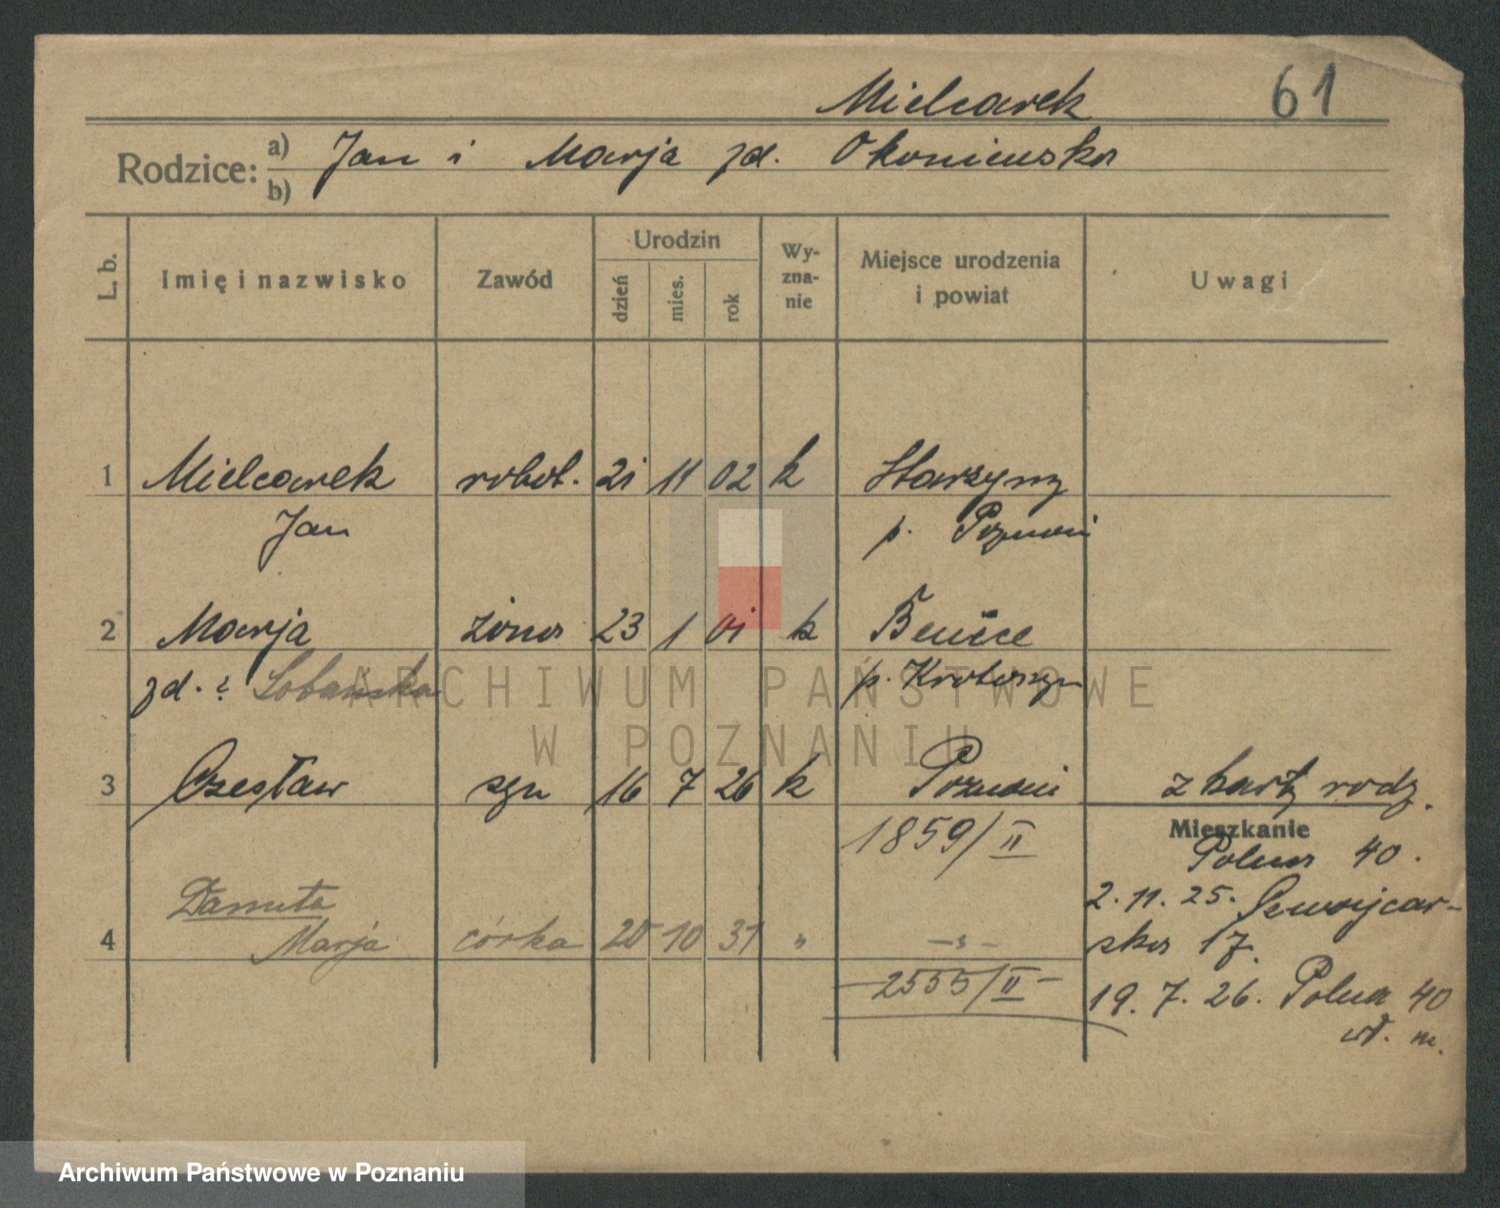 Mielcarek 61
Rodzice: a) Jan i Marja zd. Okoniewska
b)
L. b. Imię i nazwisko Zawód Urodzin dzień mies. rok Wyznanie Miejsce urodzenia i powiat Uwagi
1 Mielcarek robot. 21 11 02 k
Jan p. Poznań
2 Marja żona 23 1 01 k Benice
zd. ? Lobańska p. Krotoszyn
3 Czesław syn 16 7 26 k Poznań z karty rodz.
1859/II Mieszkanie
Polna 40.
Danuta 2.11.25.
4 Marja córka 20 10 31 " -"-
ska 17.
2555/II 19.7.26. Polna 40
w. m.
ARCHIWUM PAŃSTWOWE
W POZNANIU
Archiwum Państwowe w Poznaniu